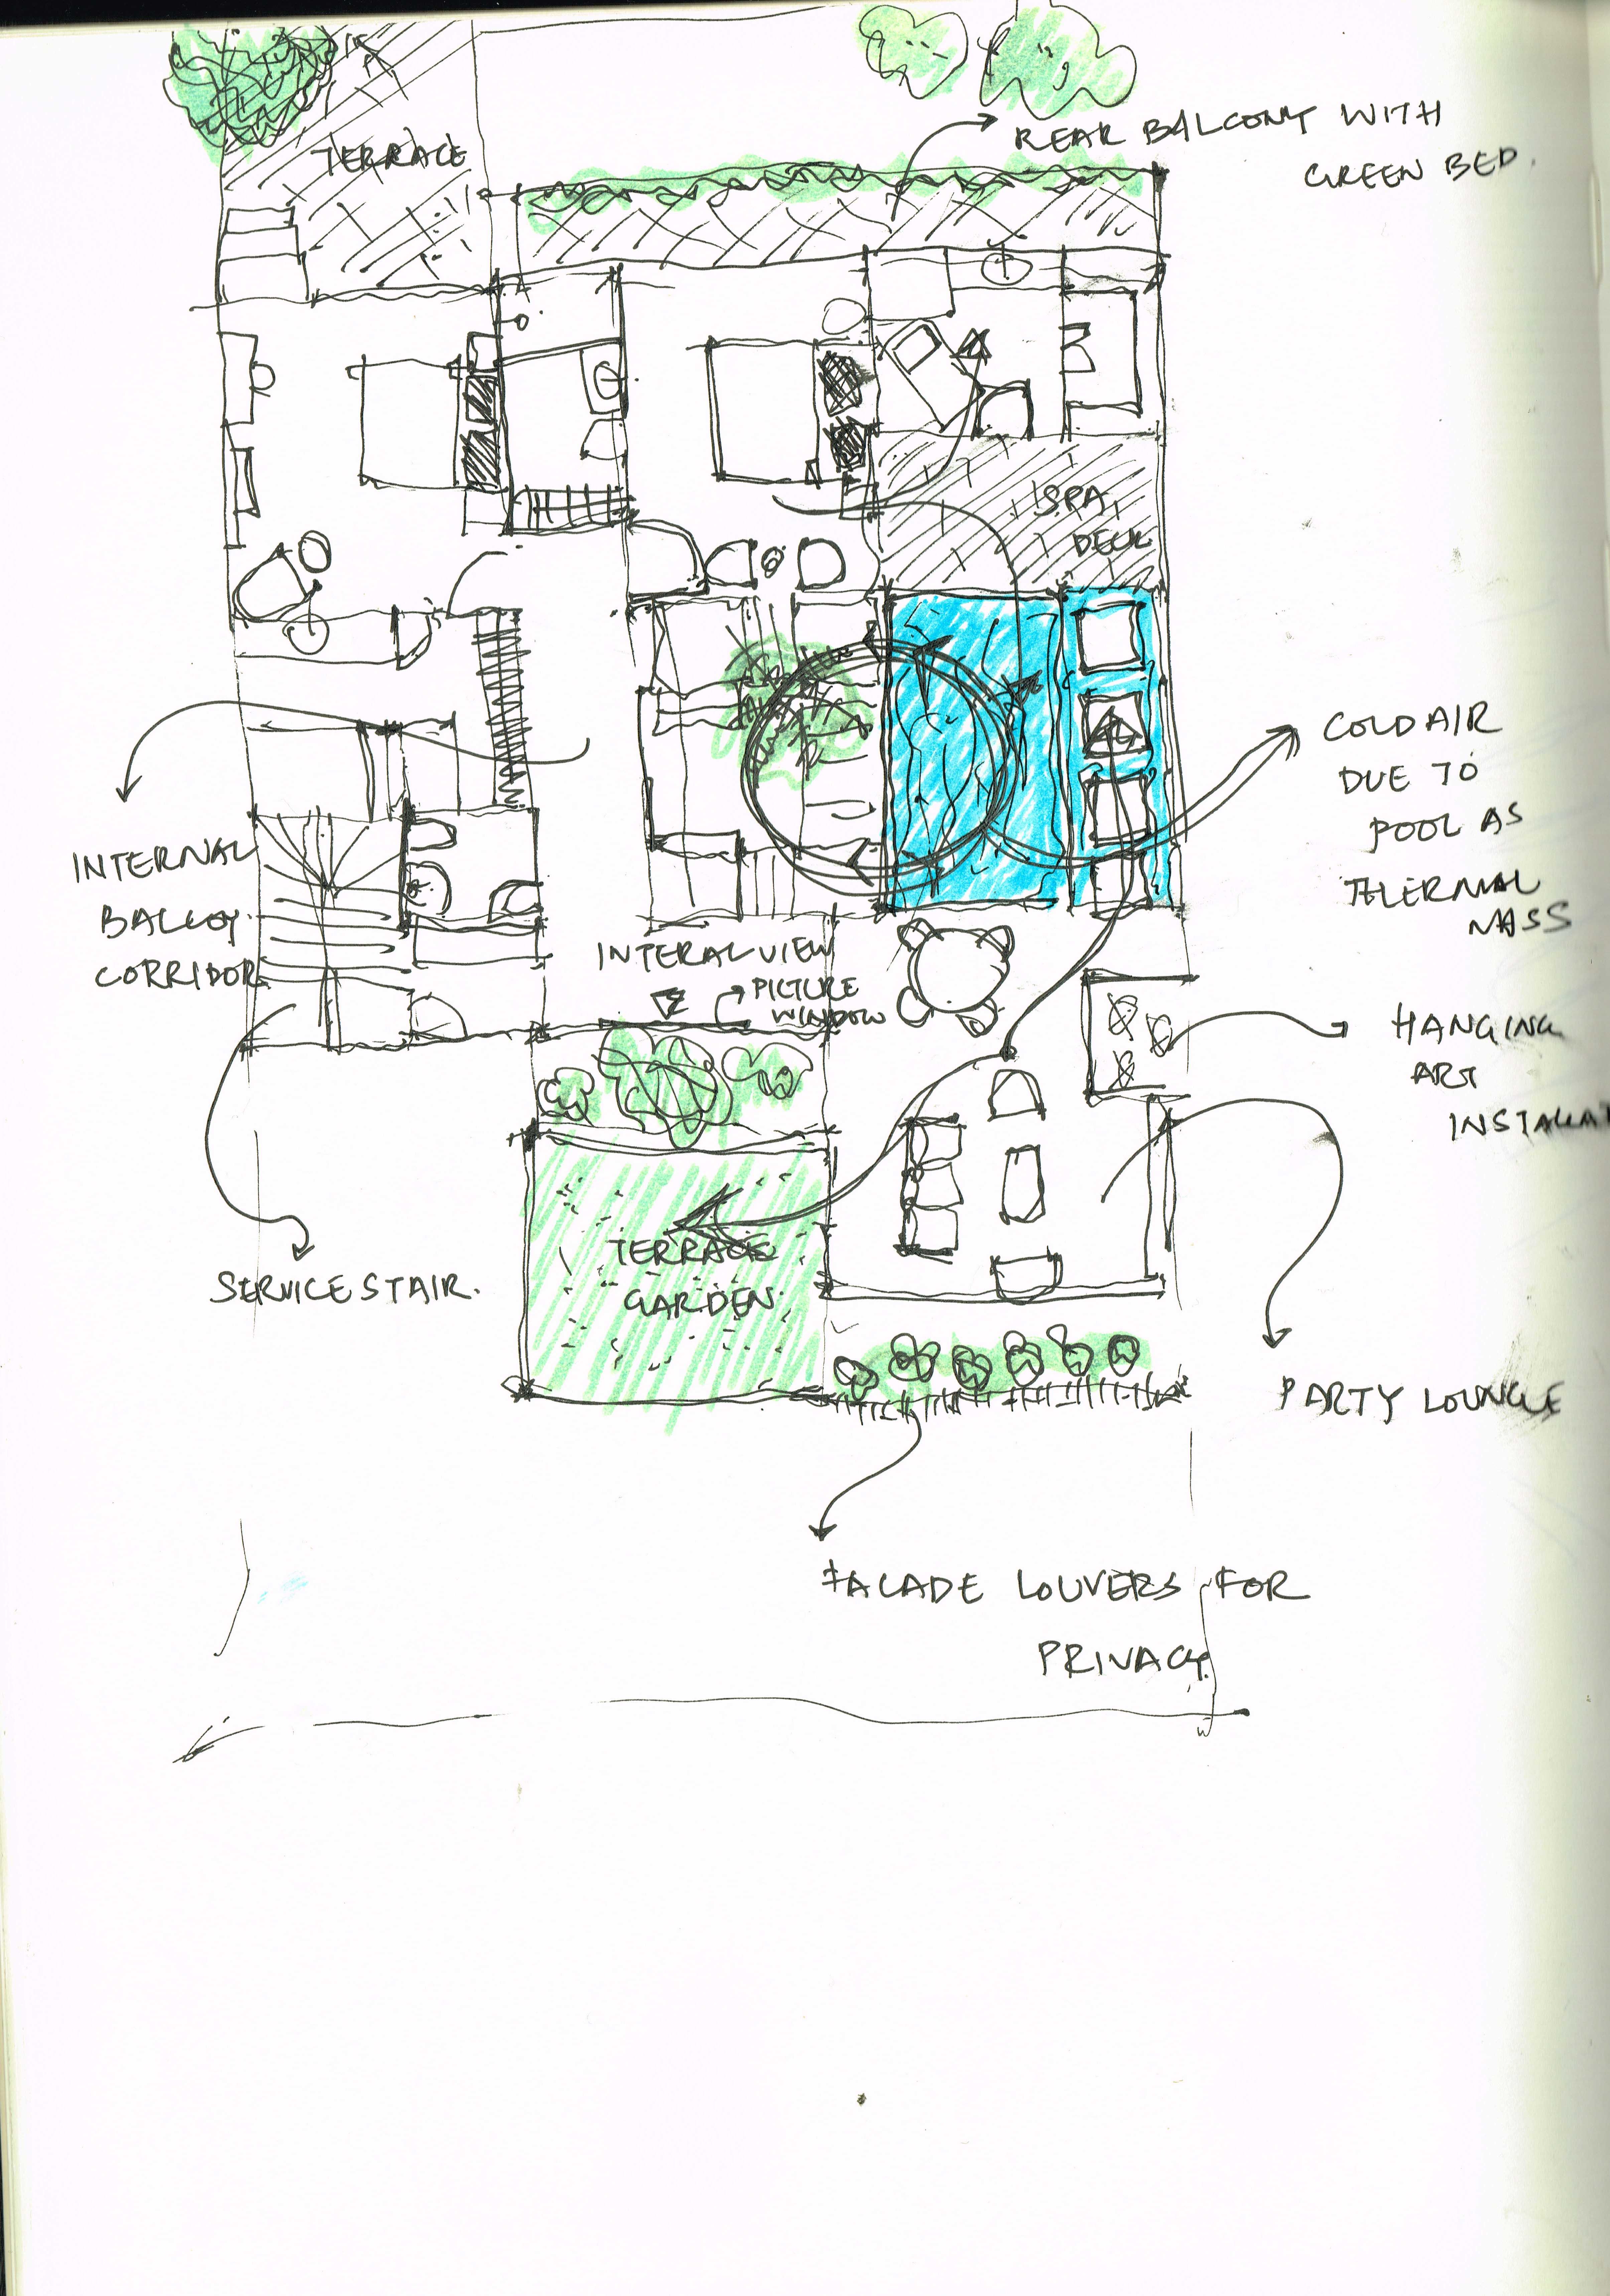 TERRACE
REAR BALCONY WITH
GREEN BED.
SPA
DECK
COLD AIR
DUE TO
POOL AS
THERMAL
MASS
INTERNAL
BALCOY
CORRIDOR
INTERAL VIEW
PICTURE
WINDOW
HANGING
ART
INSTALLAT
TERRACE
GARDEN.
SERVICE STAIR.
PARTY LOUNGE
FACADE LOUVERS FOR
PRIVACY.